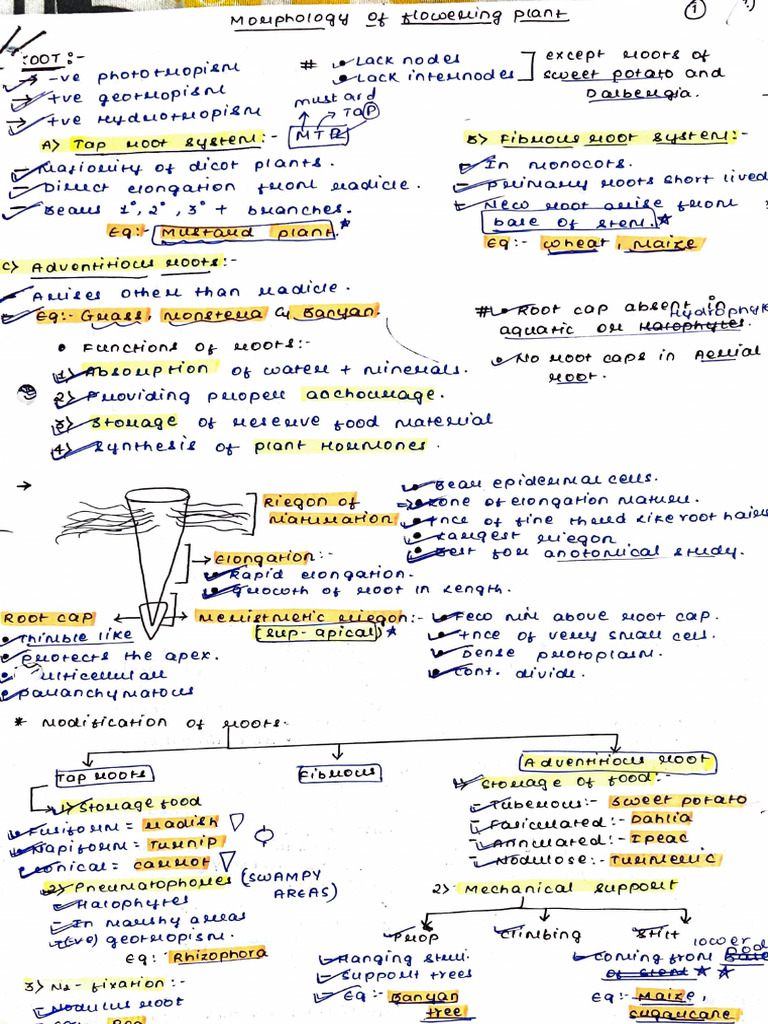 Morphology of flowering plant
①
ROOT :-
→ -ve phototropism
→ +ve geotropism
→ +ve Hydrotropism
# • Lack nodes
• Lack internodes
except roots of
sweet potato and
Dalbergia.
mustard
TaP
MTP
A) Tap root system :-
- Majority of dicot plants.
- Direct elongation from radicle.
- Bears 1°, 2°, 3° + branches.
Eg:- Mustard plant.*
B) Fibrous root system :-
- In monocots.
- Primary roots short lived
- New root arise from
base of stem. *
Eg:- wheat, Maize
C) Adventitious roots :-
- Arises other than radicle.
- Eg:- Grass, Monsteria & Banyan.
# • Root cap absent in
Hydrophyte
aquatic or Halophytes.
• No root caps in Aerial
root.
• Functions of roots:-
1) Absorption of water + minerals.
2) Providing proper anchourage.
3) Storage of reserve food material
4) Synthesis of plant Hormones.
→
Riegon of
maturation
• Bear epidermal cells.
• Zone of elongation mature.
• +nce of fine thered like root hair
• Largest riegon
• Best for anotomical study.
→ Elongation:-
• Rapid elongation.
• growth of root in length.
Root cap
• Thimble like
• protects the apex.
• ulticellular
• paranchymatous
→ Meristmetic riegon:-
(sup-apical) *
• Few mm above root cap.
• +nce of very small cell.
• Dense protoplasm.
• Cont. divide.
* Modification of roots-
Tap roots
Fibrous
Adventitious root
1) Storage food
• Fusiform = Radish
• Napiform = Turnip
• Conical = carrot
2) Pneumatophores (SWAMPY
AREAS)
- Halophytes
- In marshy areas
- (-ve) geotropism.
eg: Rhizophora
3) N₂- fixation:-
- Nodulus root
1) Storage of food:-
- Tuberous:- Sweet potato
- Fasiculated:- Dahlia
- Annulated:- Ipeac
- Nodulose:- Turmeric
2) Mechanical support
Prop
Climbing
Stilt
- Hanging stru.
- Support trees
- Eg:- Banyan
tree
lower nod
• Coming from Base
of stem * *
eg:- Maize,
sugarcane